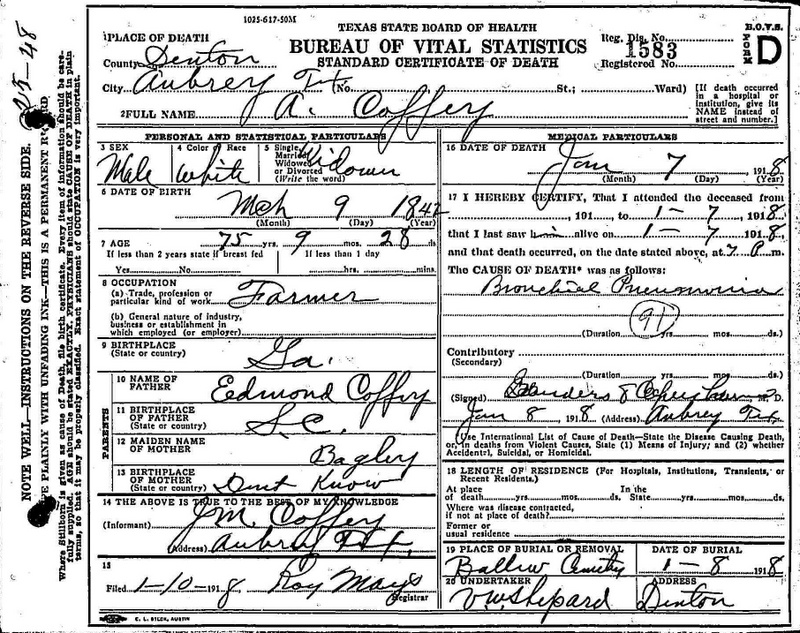 1025-617-50M
TEXAS STATE BOARD OF HEALTH
BUREAU OF VITAL STATISTICS
STANDARD CERTIFICATE OF DEATH
B.O.V.S.
FORM D
Reg. Dis. No.
1583
Registered No.
PLACE OF DEATH
County Denton
City Aubrey Tex No. St.; Ward)
[If death occurred in a hospital or institution, give its NAME instead of street and number.]
2 FULL NAME A. Coffey
PERSONAL AND STATISTICAL PARTICULARS
3 SEX Male
4 Color or Race White
5 Single, Married, Widowed or Divorced (Write the word)
6 DATE OF BIRTH Mch 9 1842
(Month) (Day) (Year)
7 AGE 75 yrs. 9 mos. 28 ds
If less than 2 years state if breast fed
If less than 1 day
Yes No hrs. mins.
8 OCCUPATION
(a) Trade, profession or particular kind of work Farmer
(b) General nature of industry, business or establishment in which employed (or employer)
9 BIRTHPLACE
(State or country) Ga.
PARENTS
10 NAME OF FATHER Eedmond Coffey
11 BIRTHPLACE OF FATHER
(State or country) S.C.
12 MAIDEN NAME OF MOTHER Bagley
13 BIRTHPLACE OF MOTHER
(State or country) Dont Know
14 THE ABOVE IS TRUE TO THE BEST OF MY KNOWLEDGE
(Informant) J.M. Coffey
(Address) Aubrey Tex.
15
Filed 1-10-1918 Roy Mays
Registrar
MEDICAL PARTICULARS
16 DATE OF DEATH
Jan 7 1918
(Month) (Day) (Year)
17 I HEREBY CERTIFY, That I attended the deceased from
, 191 , to 1-7 1918
that I last saw him alive on 1-7 1918
and that death occurred, on the date stated above, at 7 P. m.
The CAUSE OF DEATH* was as follows:
Bronchial Pneumonia
91
(Duration) yrs. mos. ds.
Contributory
(Secondary)
(Duration) yrs. mos. ds.
(Signed) M.D.
Jan 8 1918 (Address) Aubrey Tex
(Use International List of Cause of Death—State the Disease Causing Death, or, in deaths from Violent Causes, State (1) Means of Injury; and (2) whether Accidental, Suicidal, or Homicidal.
18 LENGTH OF RESIDENCE (For Hospitals, Institutions, Transients, or Recent Residents.)
At place of death yrs. mos. ds. In the State yrs. mos. ds.
Where was disease contracted, if not at place of death?
Former or usual residence
19 PLACE OF BURIAL OR REMOVAL
DATE OF BURIAL
Ballew Cemetry 1-8 1918
20 UNDERTAKER
ADDRESS
V W Shepard Denton
E. L. STECK, AUSTIN
25-48
NOTE WELL—INSTRUCTIONS ON THE REVERSE SIDE.
PLAINLY WITH UNFADING INK—THIS IS A PERMANENT
Where Stillborn is given as cause of Death, file birth certificate. Every item of information should be carefully supplied. AGE should be stated EXACTLY. PHYSICIANS should state CAUSE OF DEATH in plain terms, so that it may be properly classified. Exact statement of OCCUPATION is very important.